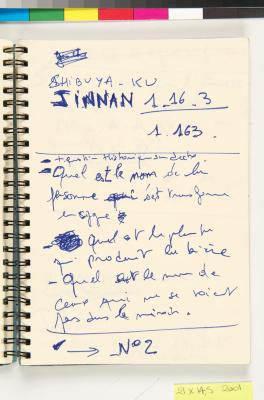 SHIBUYA-KU
JINNAN 1_16_3
1.163.
- Quel est le nom de la
personne qui s'est transformé
en signe
- Quel est la plante
qui produit la bière
- Quel est le nom de
ceux qui ne se voient
pas dans le miroir.
→ N°2
21 x 14,5 2001